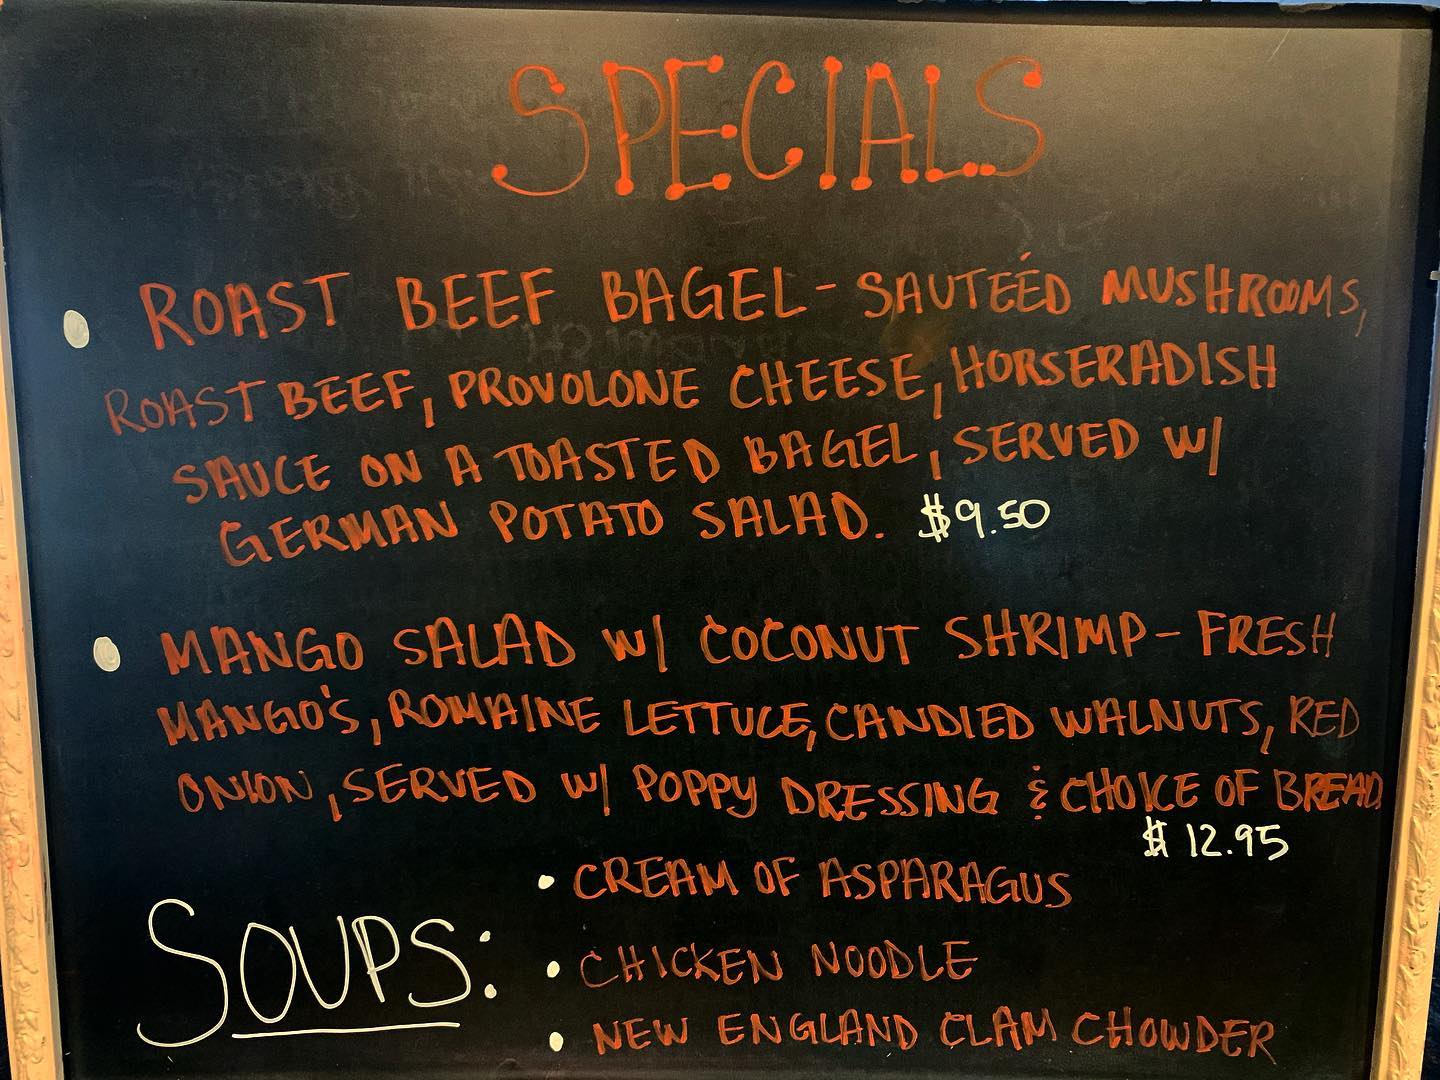 SPECIALS
• ROAST BEEF BAGEL - SAUTEÉD MUSHROOMS,
ROAST BEEF, PROVOLONE CHEESE, HORSERADISH
SAUCE ON A TOASTED BAGEL, SERVED W/
GERMAN POTATO SALAD. $9.50
• MANGO SALAD W/ COCONUT SHRIMP - FRESH
MANGO'S, ROMAINE LETTUCE, CANDIED WALNUTS, RED
ONION, SERVED W/ POPPY DRESSING & CHOICE OF BREAD.
$12.95
SOUPS:
• CREAM OF ASPARAGUS
• CHICKEN NOODLE
• NEW ENGLAND CLAM CHOWDER